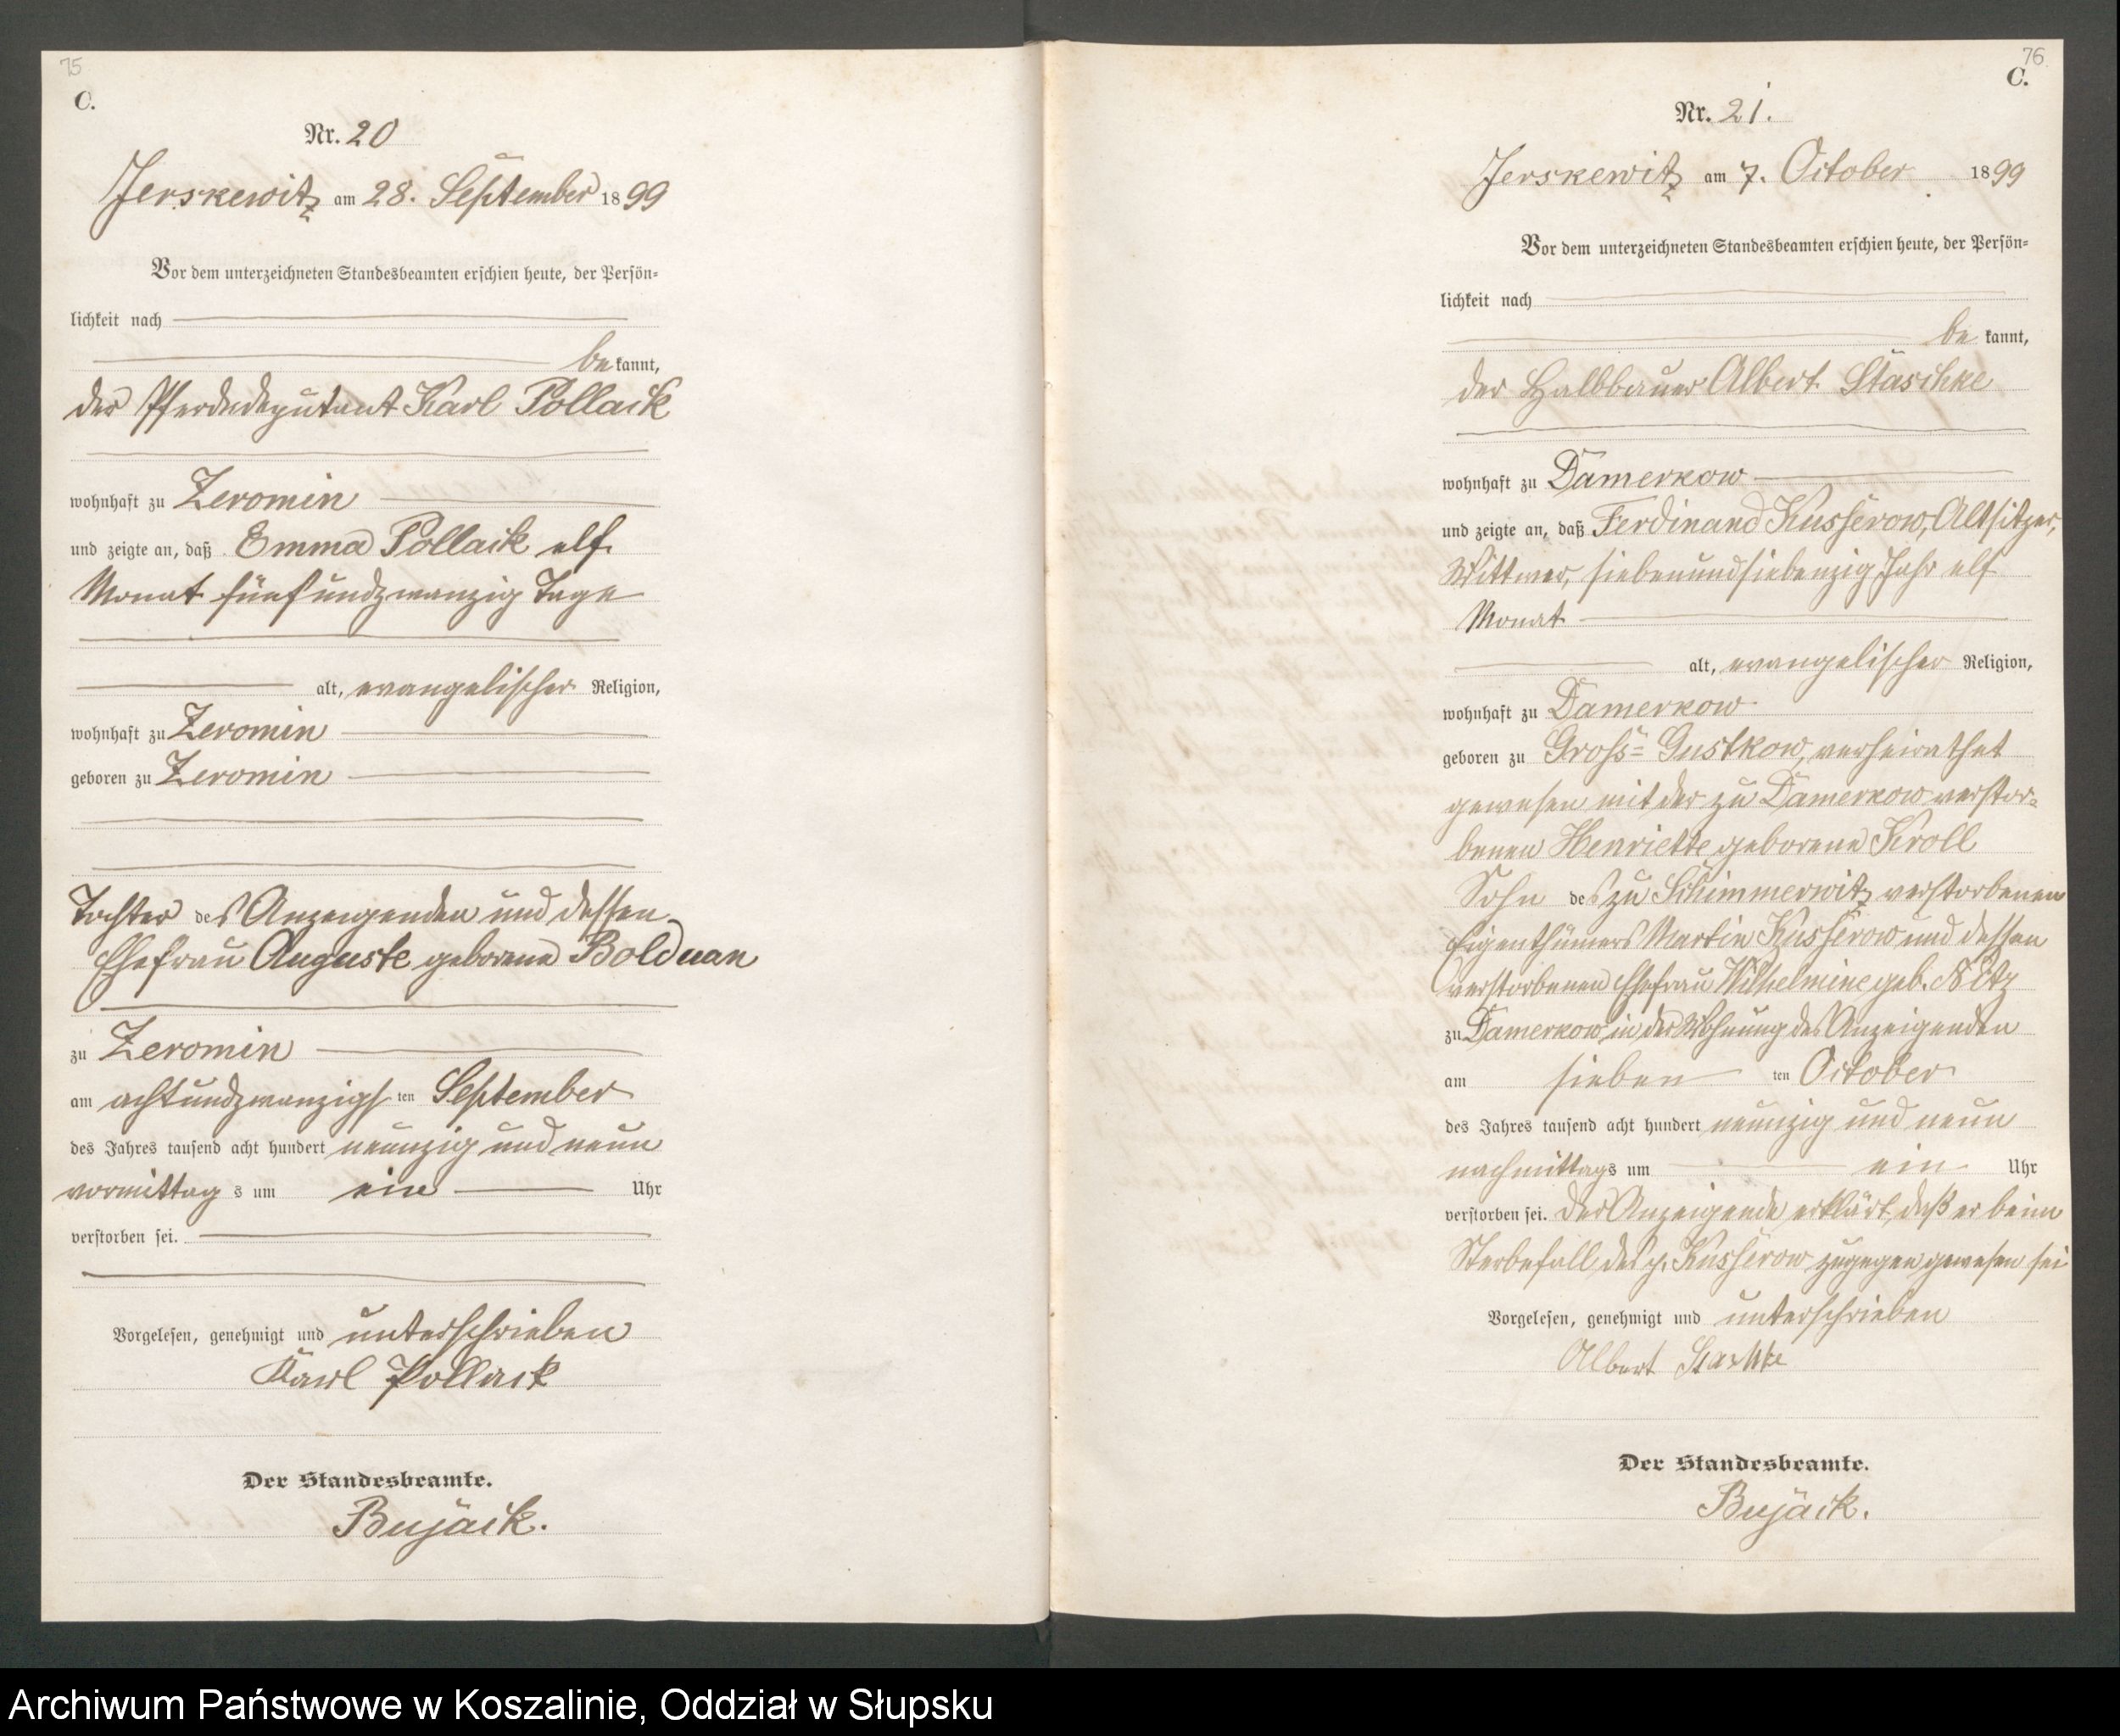 75
C.
Nr. 20
Jerskewitz am 28. September 1899
Vor dem unterzeichneten Standesbeamten erschien heute, der Persön-
lichkeit nach
be kannt,
der Pferdedeputant Karl Pollack
wohnhaft zu Zeromin
und zeigte an, daß Emma Pollack elf
Monat fünfundzwanzig Tage
alt, evangelischer Religion,
wohnhaft zu Zeromin
geboren zu Zeromin
Tochter des Anzeigenden und dessen
Ehefrau Auguste geborene Bolduan
zu Zeromin
am achtundzwanzigsten September
des Jahres tausend acht hundert neunzig und neun
vormittags um ein Uhr
verstorben sei.
Vorgelesen, genehmigt und unterschrieben
Karl Pollack
Der Standesbeamte.
Bujack.
76
C.
Nr. 21.
Jerskewitz am 7. October 1899
Vor dem unterzeichneten Standesbeamten erschien heute, der Persön-
lichkeit nach
be kannt,
der Halbbauer Albert Staschke
wohnhaft zu Damerkow
und zeigte an, daß Ferdinand Kusserow, Altsitzer,
Wittwer, siebenundsiebenzig Jahr elf
Monat
alt, evangelischer Religion,
wohnhaft zu Damerkow
geboren zu Groß-Gustkow, verheirathet
gewesen mit der zu Damerkow verstor-
benen Henriette geborene Kroll
Sohn des zu Schimmerwitz verstorbenen
Eigenthümers Martin Kusserow und dessen
verstorbenen Ehefrau Wilhelmine geb.
zu Damerkow in der Wohnung des Anzeigenden
am siebenten October
des Jahres tausend acht hundert neunzig und neun
nachmittags um ein Uhr
verstorben sei. Der Anzeigende erklärt, daß er beim
Sterbefall des p. Kusserow zugegen gewesen sei
Vorgelesen, genehmigt und unterschrieben
Albert Staschke
Der Standesbeamte.
Bujack.
Archiwum Państwowe w Koszalinie, Oddział w Słupsku